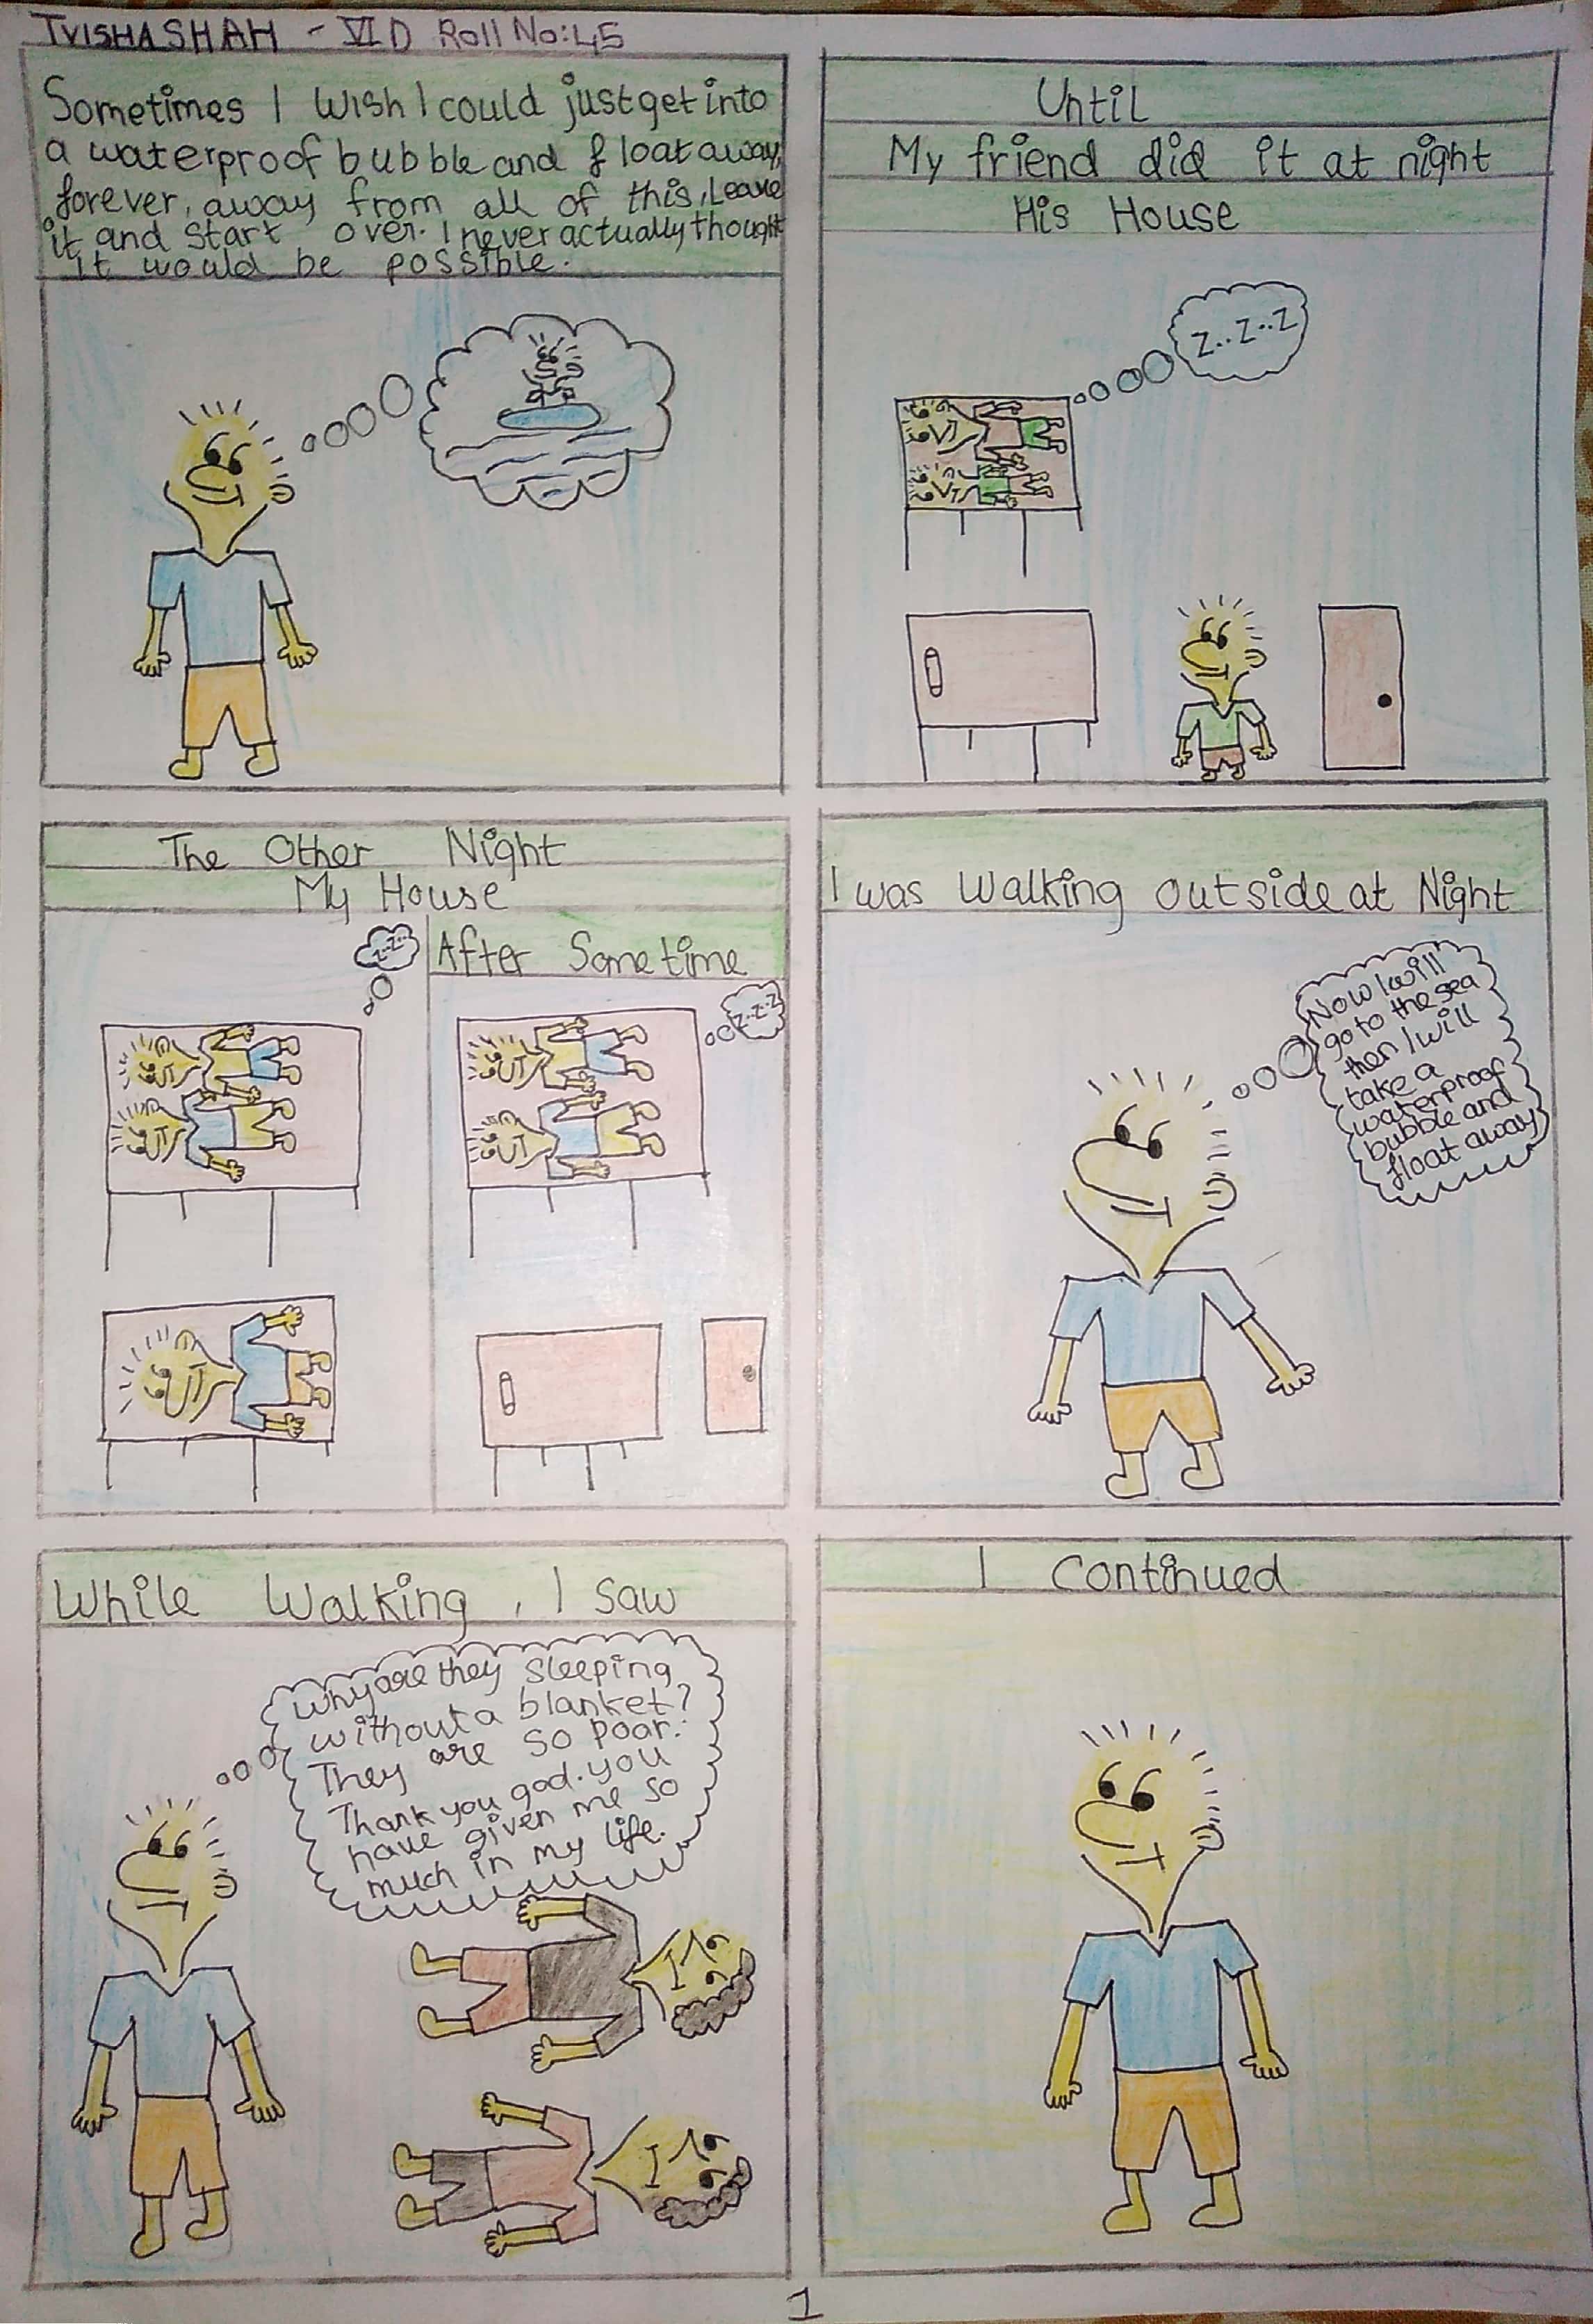 TVISHA SHAH - VI D Roll No:45
Sometimes I Wish I could just get into
a waterproof bubble and float away,
forever, away from all of this, Leave
it and start over. I never actually thought
it would be possible.
Until
My friend did it at night
His House
Z..Z..Z
The Other Night
My House
Z..Z..
After Sometime
Z..Z..Z
I was Walking outside at Night
Now I will
go to the sea
then I will
take a
waterproof
bubble and
float away
While Walking, I Saw
Why are they sleeping
without a blanket?
They are so poar.
Thank you god. you
have given me so
much in my life.
I Continued
1